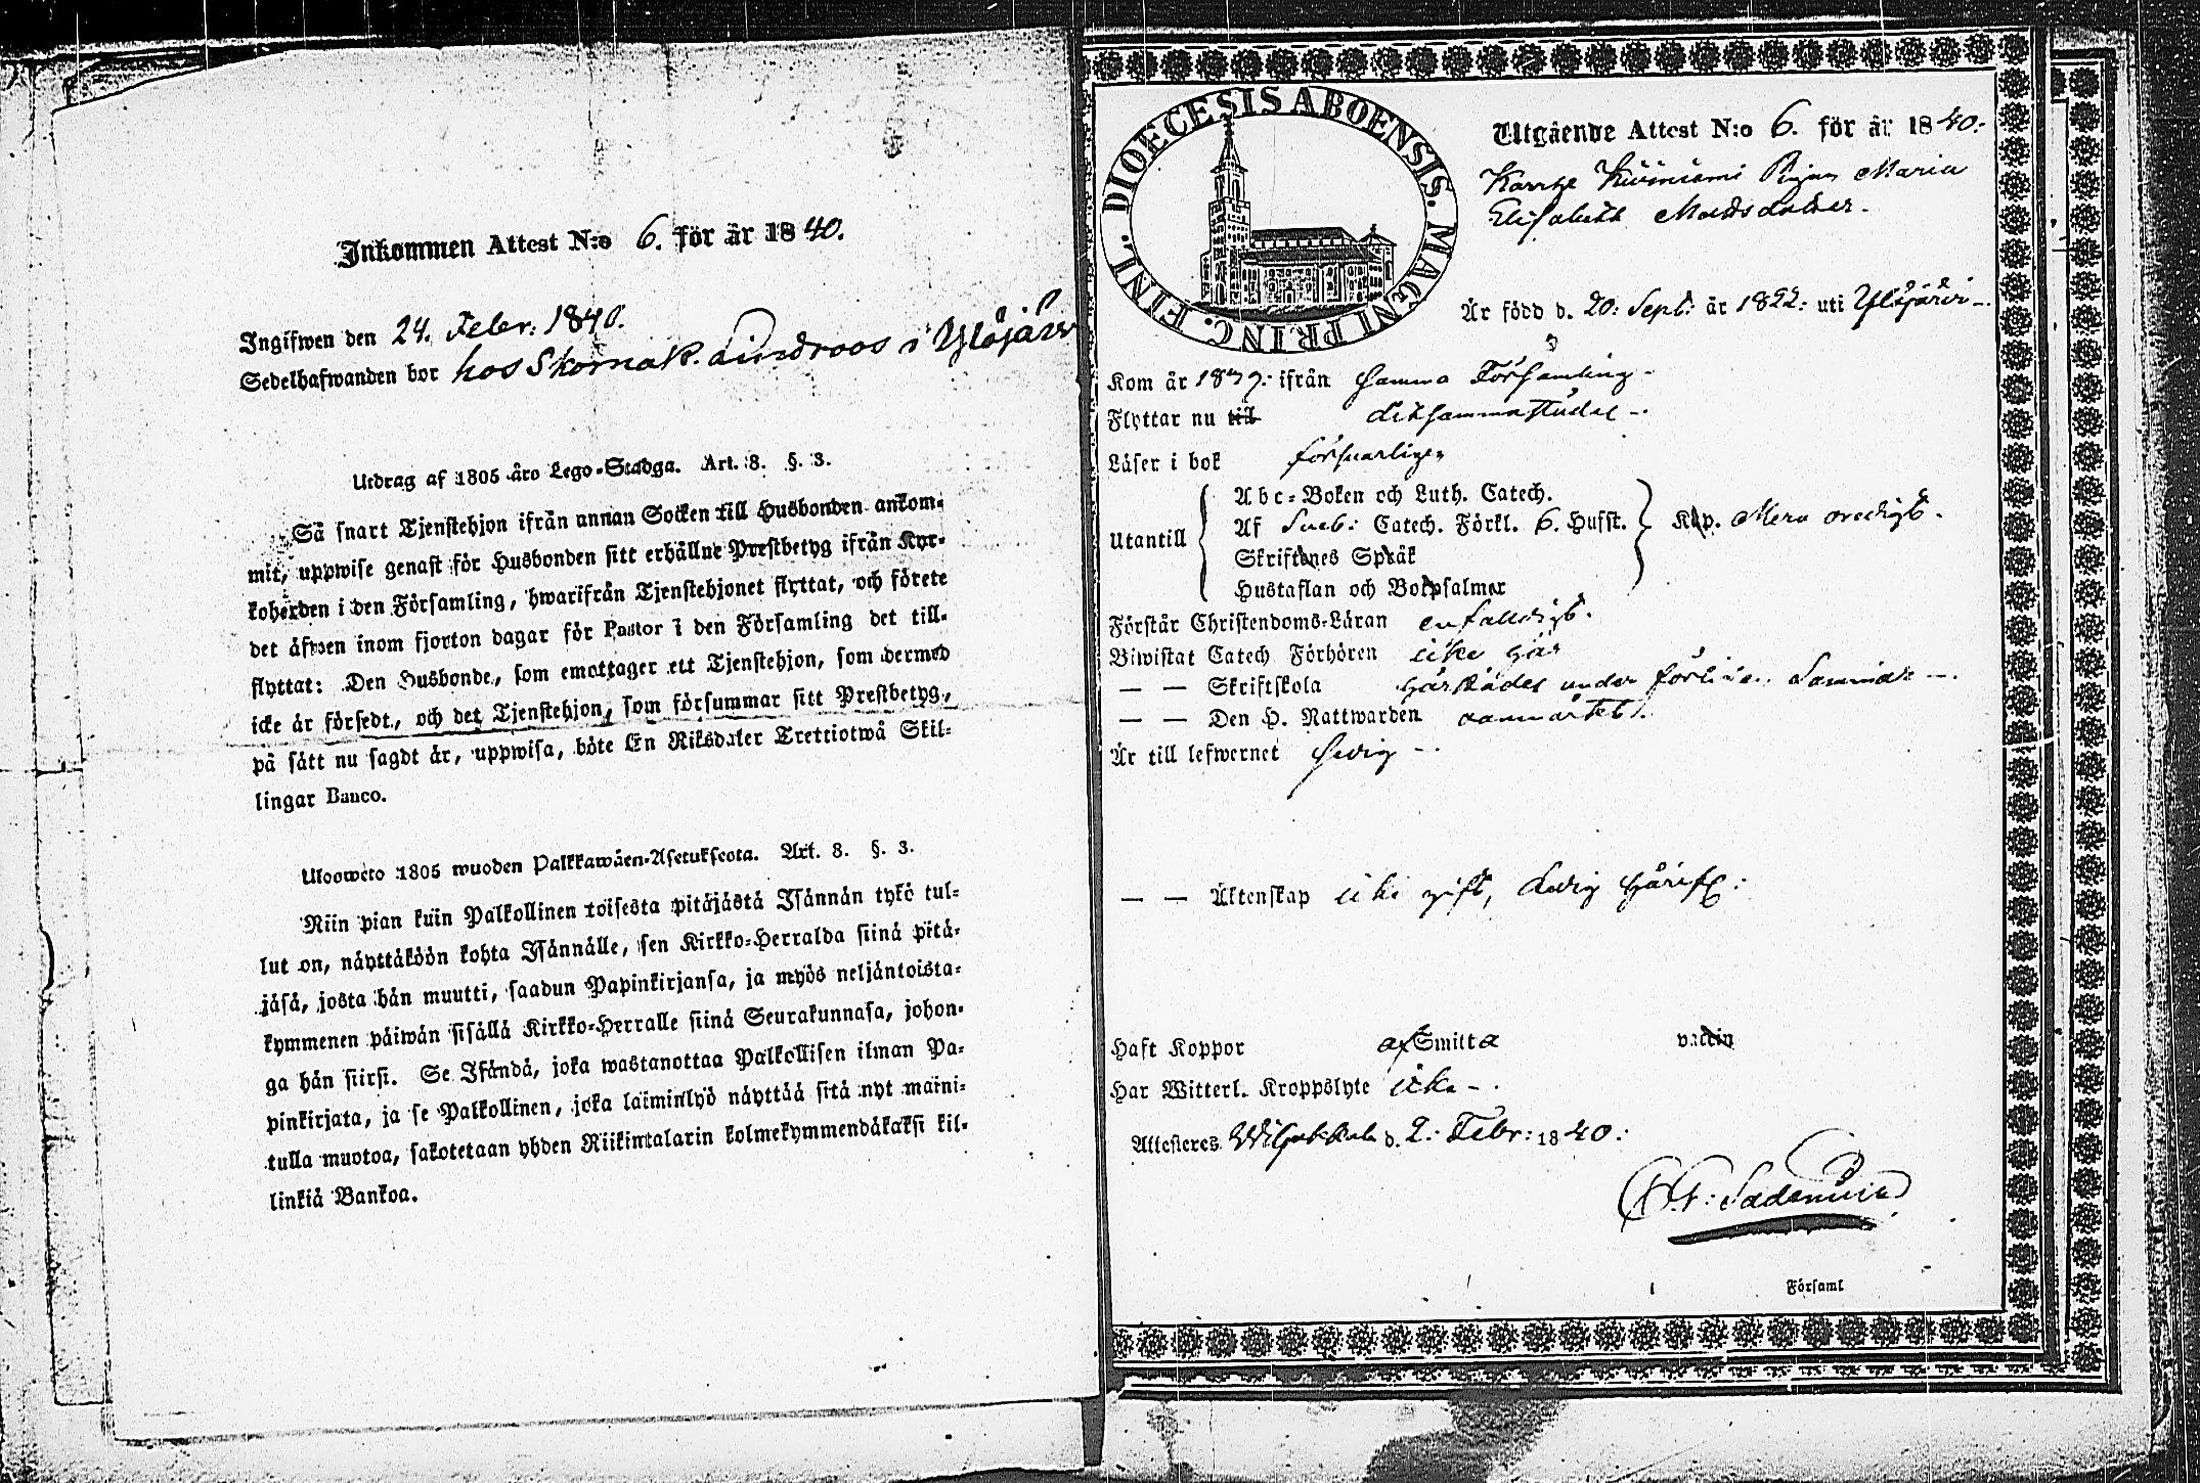 Inkommen Attest N:o 6. för år 1840.
Ingifwen den 24. Febr: 1840.
Sedelhafwanden bor hos Skomak. Lindroos i Ylöjärv
Utdrag af 1805 års Lego-Stadga. Art. 8. §. 3.
Så snart Tjenstehjon ifrån annan Socken till Husbonden ankom-
mit, uppwise genast för Husbonden sitt erhållne Prestbetyg ifrån Kyr-
koherden i den Församling, hwarifrån Tjenstehjonet flyttat, och förete
det äfwen inom fjorton dagar för Pastor i den Församling det till-
flyttat: Den Husbonde, som emottager ett Tjenstehjon, som dermed
icke är försedt, och det Tjenstehjon, som försummar sitt Prestbetyg,
på sätt nu sagdt är, uppwisa, böte En Riksdaler Trettiotwå Skil-
lingar Banco.
Ulosweto 1805 wuoden Palkkawäen-Asetuksesta. Art. 8. §. 3.
Niin pian kuin Palkollinen toisesta pitäjästä Isännän tykö tul-
lut on, näyttäköön kohta Isännälle, sen Kirkko-Herralda siinä pitä-
jäsä, josta hän muutti, saadun Papinkirjansa, ja myös neljäntoista-
kymmenen päiwän sisällä Kirkko-Herralle siinä Seurakunnasa, johon-
ga hän siirsi. Se Isändä, joka wastanottaa Palkollisen ilman Pa-
pinkirjata, ja se Palkollinen, joka laiminlyö näyttää sitä nyt maini-
tulla muotoa, sakotetaan yhden Riikintalarin kolmekymmendäkaksi kil-
linkiä Bankoa.
DIOECESIS ABOENSIS. MAGNI PRINC. FINL.
Utgående Attest N:o 6. för år 1840.
Maria
Elisabeth Mattsdotter.
Är född d. 20: Sept: år 1822: uti Ylöjärvi
Kom år ifrån samma Församling
Flyttar nu till
Läser i bok försvarligen
Utantill
Abc-Boken och Luth. Catech.
Af Sveb: Catech. Förkl. 6. Hufst. Kap.
Skriftenes Språk
Hustaflan och Botpsalmer
Förstår Christendoms-Läran enfaldigt.
Biwistat Catech Förhören icke här
— — Skriftskola härstädes under
— — Den H. Nattwarden
Är till lefwernet sedig
— — Äktenskap icke gift, ledig härifr:
Haft Koppor af Smitta vaccin
Har Witterl. Kroppslyte icke
Attesteres d. 2: Febr: 1840:
Församl